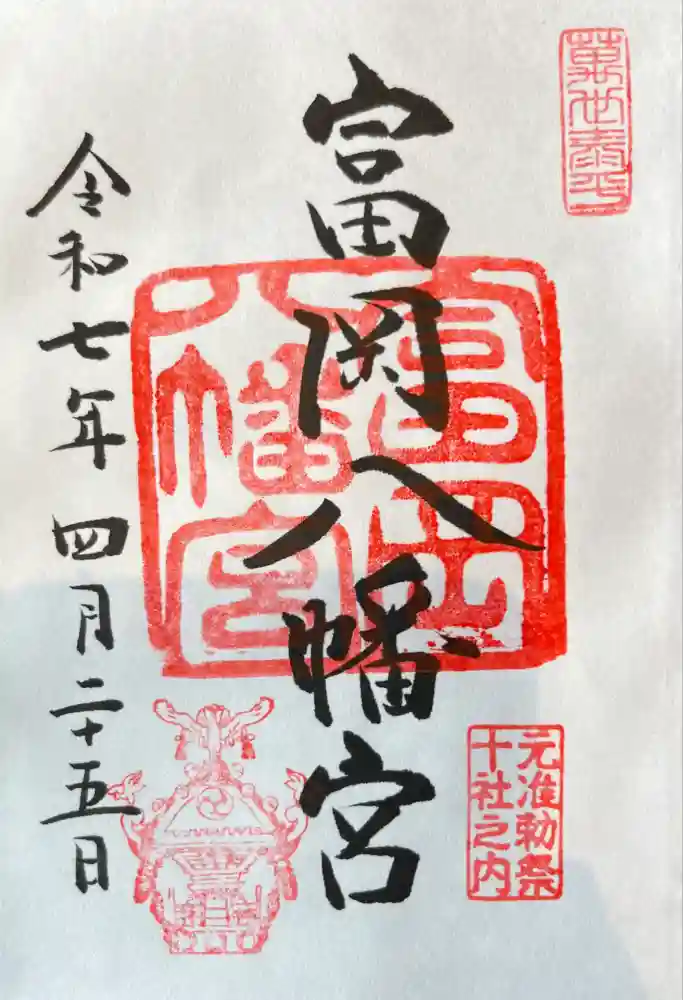 萬世泰平
富岡八幡宮
富岡八幡宮
元准勅祭
十社之内
令和七年四月二十五日